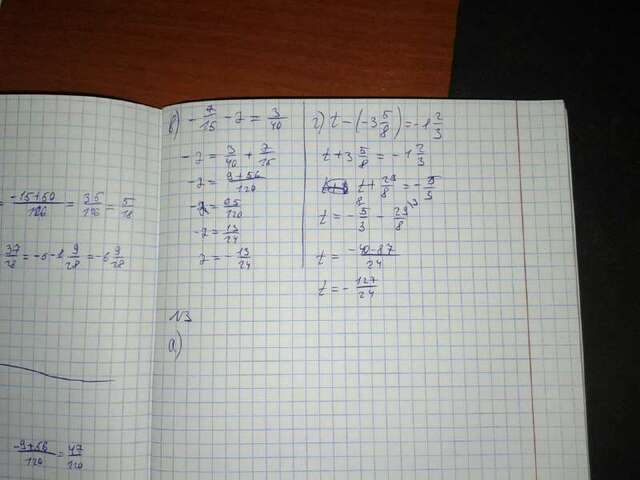 = -15+50/120 = 35/120 = 5/18
37/28 = -5-1 9/28 = -6 9/28
-9+56/120 = 47/120
в) -7/15 - z = 3/40
-z = 3/40 + 7/15
-z = 9+56/120
-z = 65/120
-z = 13/24
z = -13/24
N3
а)
г) t - (-3 5/8) = -1 2/3
t + 3 5/8 = -1 2/3
t + 29/8 = -5/3
t = -5/3 - 29/8
t = -40-87/24
t = -127/24